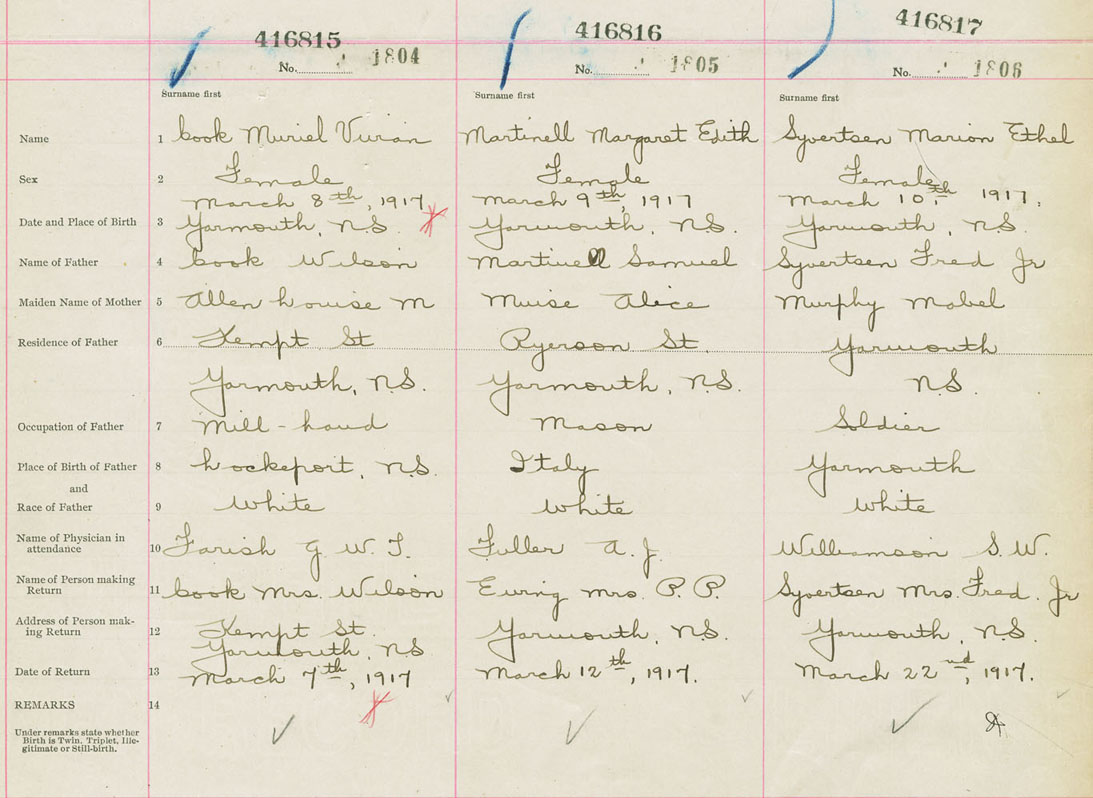 416815 416816 416817
No. 1804 No. 1805 No. 1806
Surname first Surname first Surname first
Name 1 Cook Muriel Vivian Martinell Margaret Edith Syvertsen Marion Ethel
Sex 2 Female Female Female
March 8th, 1917 March 9th, 1917 March 10th 1917.
Date and Place of Birth 3 Yarmouth, N.S. Yarmouth, N.S. Yarmouth, N.S.
Name of Father 4 Cook Wilson Martinell Samuel Syvertsen Fred Jr
Maiden Name of Mother 5 Allen Louise M Muise Alice Murphy Mabel
Residence of Father 6 Kempt St Ryerson St. Yarmouth
Yarmouth, N.S. Yarmouth, N.S. N.S.
Occupation of Father 7 Mill-hand Mason Soldier
Place of Birth of Father 8 Lockeport, N.S. Italy Yarmouth
and
Race of Father 9 White White White
Name of Physician in
attendance 10 Farish G. W. T. Fuller A. J. Williamson S. W.
Name of Person making
Return 11 Cook Mrs. Wilson Ewing Mrs. P. P. Syvertsen Mrs. Fred. Jr
Address of Person mak-
ing Return 12 Kempt St. Yarmouth, N.S. Yarmouth, N.S.
Yarmouth, N.S
Date of Return 13 March 7th, 1917 March 12th, 1917. March 22nd, 1917.
REMARKS 14
Under remarks state whether
Birth is Twin, Triplet, Ille-
gitimate or Still-birth.